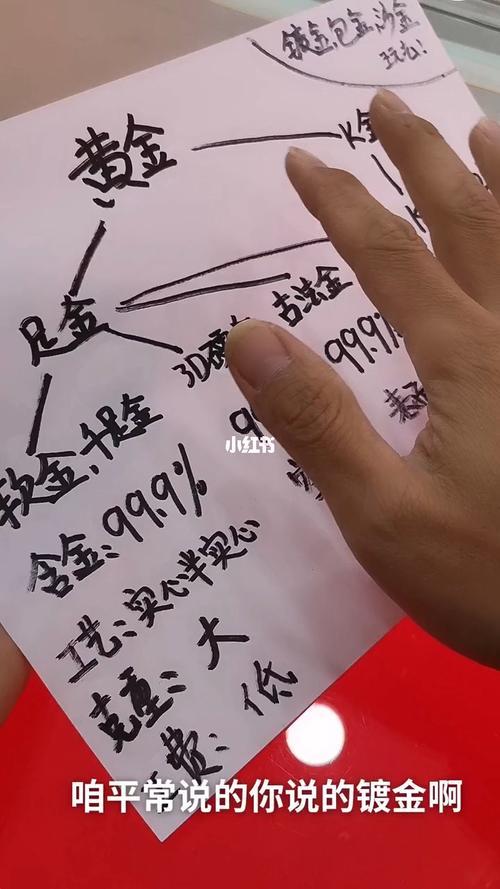 镀金、包金、沙金
黄金
K金
足金
古法金
3D硬
99.9%
软金、千足金
含金：99.9%
工艺：实心半实心
克重：大
工费：低
小红书
咱平常说的你说的镀金啊